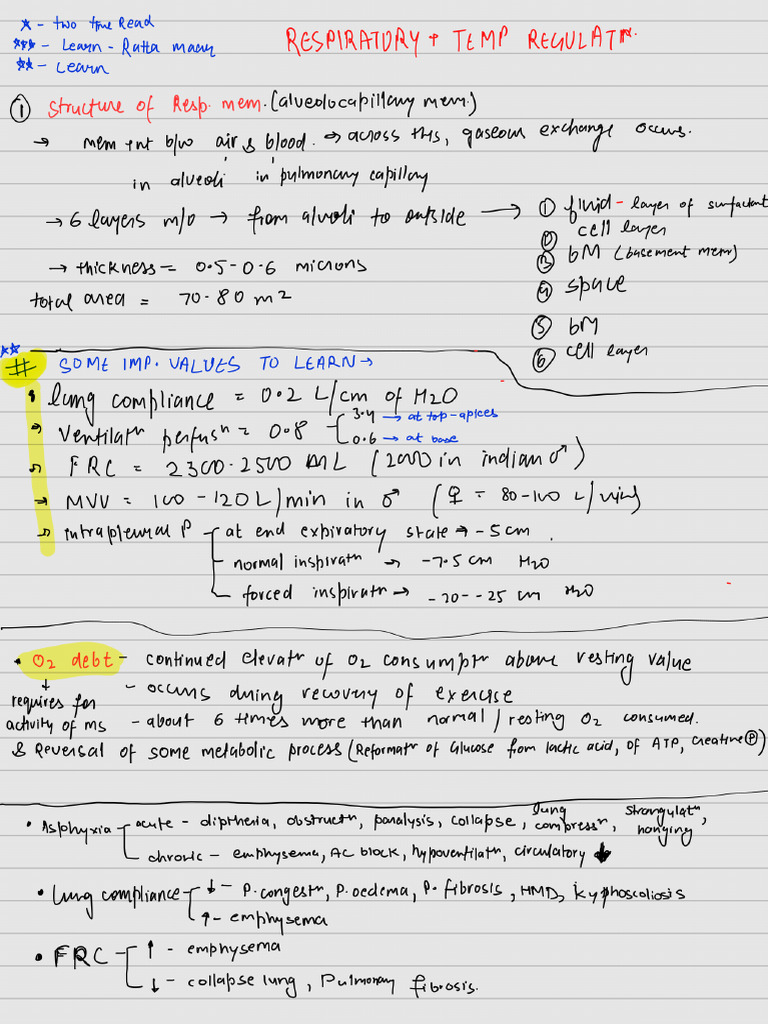 * - two time Read
*** - Learn - Ratta maar
** - Learn
RESPIRATORY + TEMP REGULATn.
① Structure of Resp. mem. (alveolocapillary mem.)
→ mem +nt b/w air & blood. → across this, gaseous exchange occurs.
in alveoli in pulmonary capillary
→ 6 layers m/o → from alveoli to outside → ① fluid - layer of surfactant
② cell layer
③ bM (basement mem)
④ space
⑤ bM
⑥ cell layer
→ thickness = 0.5-0.6 microns
total area = 70-80 m2
**
# SOME IMP. VALUES TO LEARN →
• lung compliance = 0.2 L/cm of H2O
→ Ventilatn perfusn = 0.8 3.4 → at top-apices
0.6 → at base
→ FRC = 2300-2500 mL (2000 in indian ♂)
→ MVV = 100-120 L/min in ♂ (♀ = 80-100 L/min)
→ intrapleural P at end expiratory state → -5 cm.
normal inspiratn → -7.5 cm H2O
forced inspiratn → -20--25 cm H2O
• O2 debt - continued elevatn of O2 consumptn above resting value
↓
requires for - occurs during recovery of exercise
activity of ms - about 6 times more than normal/resting O2 consumed.
& Reversal of some metabolic process (Reformatn of Glucose from lactic acid, of ATP, creatine Ⓟ)
• Asphyxia acute - diptheria, obstructn, paralysis, collapse, lung compressn, strangulatn, hanging
chronic - emphysema, AC block, hypoventilatn, circulatory ↓
• Lung compliance ↓ - P. congestn, P. oedema, P. fibrosis, HMD, kyphoscoliosis
↑ - emphysema
• FRC ↑ - emphysema
↓ - collapse lung, Pulmonary fibrosis.